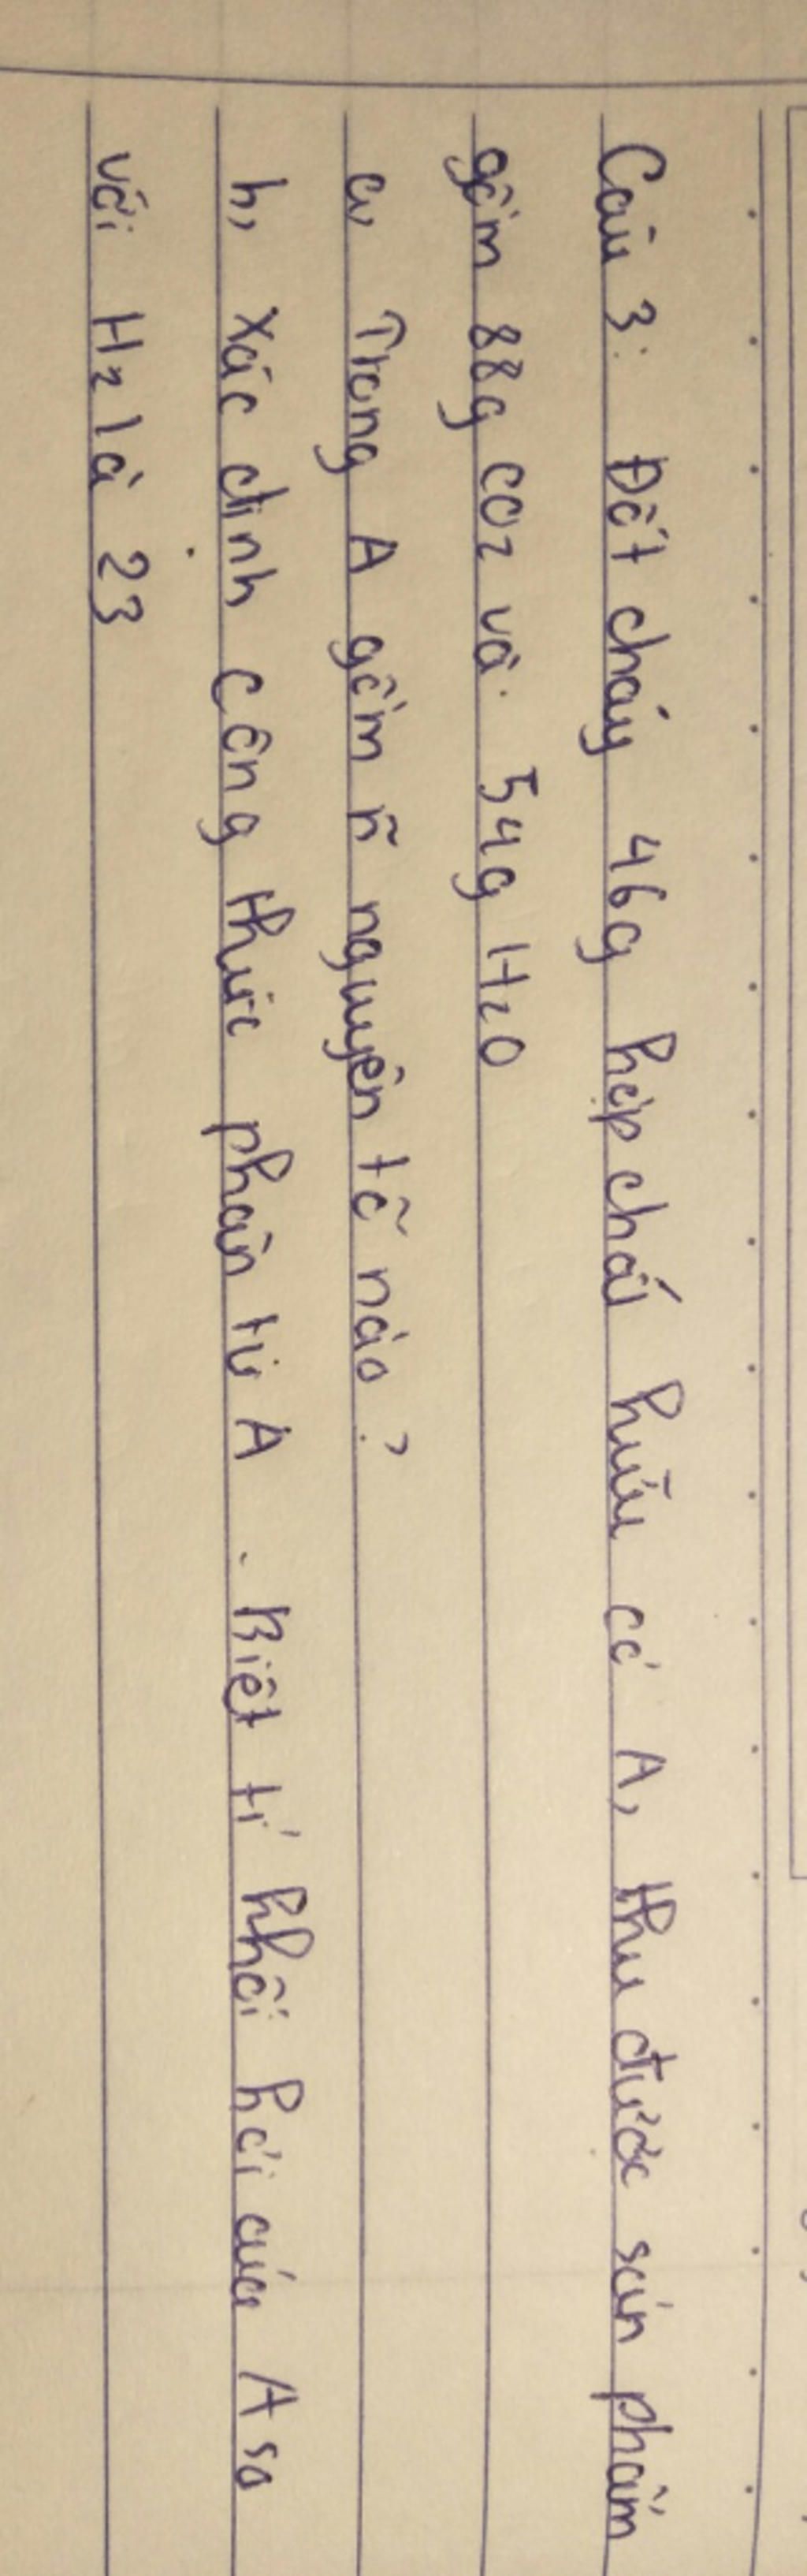 Câu 3: Đốt cháy 46g hợp chất hữu cơ A, thu được sản phẩm
gồm 88g CO2 và 54g H2O
a, Trong A gồm n~ nguyên tố nào?
b, Xác định công thức phân tử A. Biết tỉ khối hơi của A so
với H2 là 23